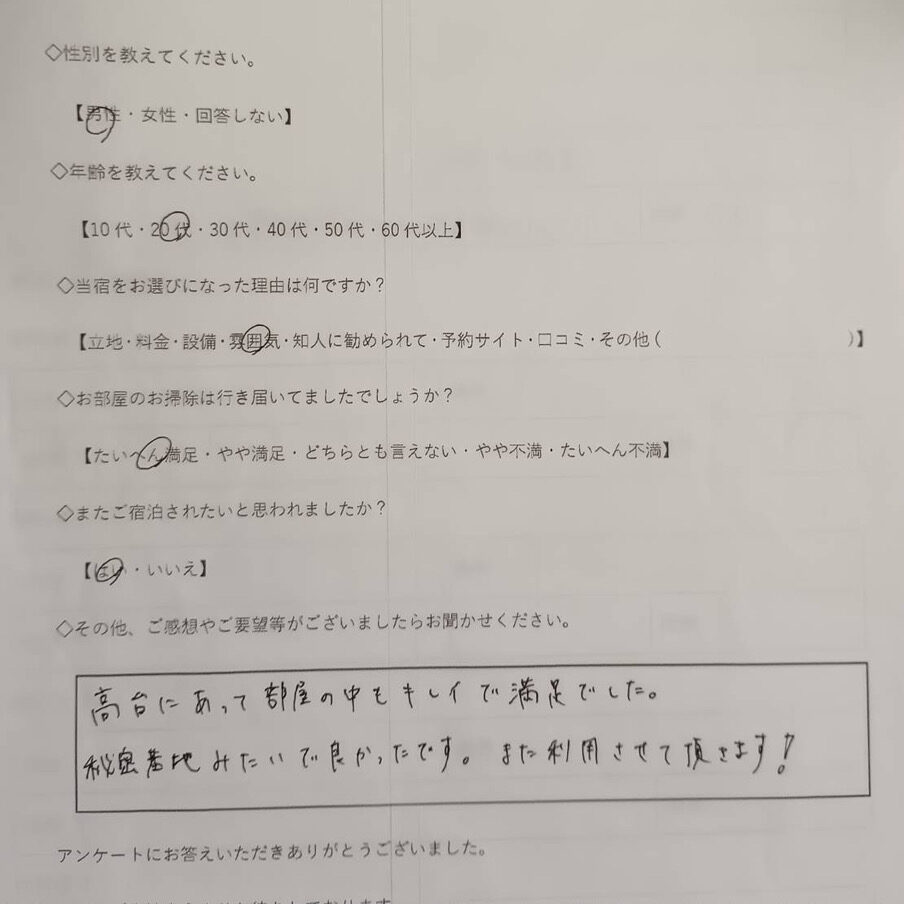 ◇性別を教えてください。
【男性・女性・回答しない】
◇年齢を教えてください。
【10代・20代・30代・40代・50代・60代以上】
◇当宿をお選びになった理由は何ですか？
【立地・料金・設備・雰囲気・知人に勧められて・予約サイト・口コミ・その他（　）】
◇お部屋のお掃除は行き届いてましたでしょうか？
【たいへん満足・やや満足・どちらとも言えない・やや不満・たいへん不満】
◇またご宿泊されたいと思われましたか？
【はい・いいえ】
◇その他、ご感想やご要望等がございましたらお聞かせください。
高台にあって部屋の中もキレイで満足でした。
秘密基地みたいで良かったです。また利用させて頂きます！
アンケートにお答えいただきありがとうございました。